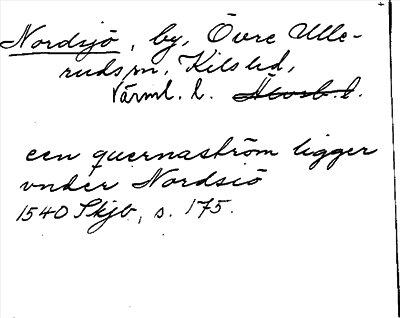 Nordsjö, by, Övre Ulle-
ruds sn, Kils hd,
Värml. l.
een quernaström ligger
vnder Nordsiö
1540 Skjb, s. 175.